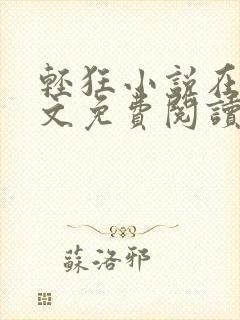 輕狂小說在
文免費閱讀
蘇洛邪